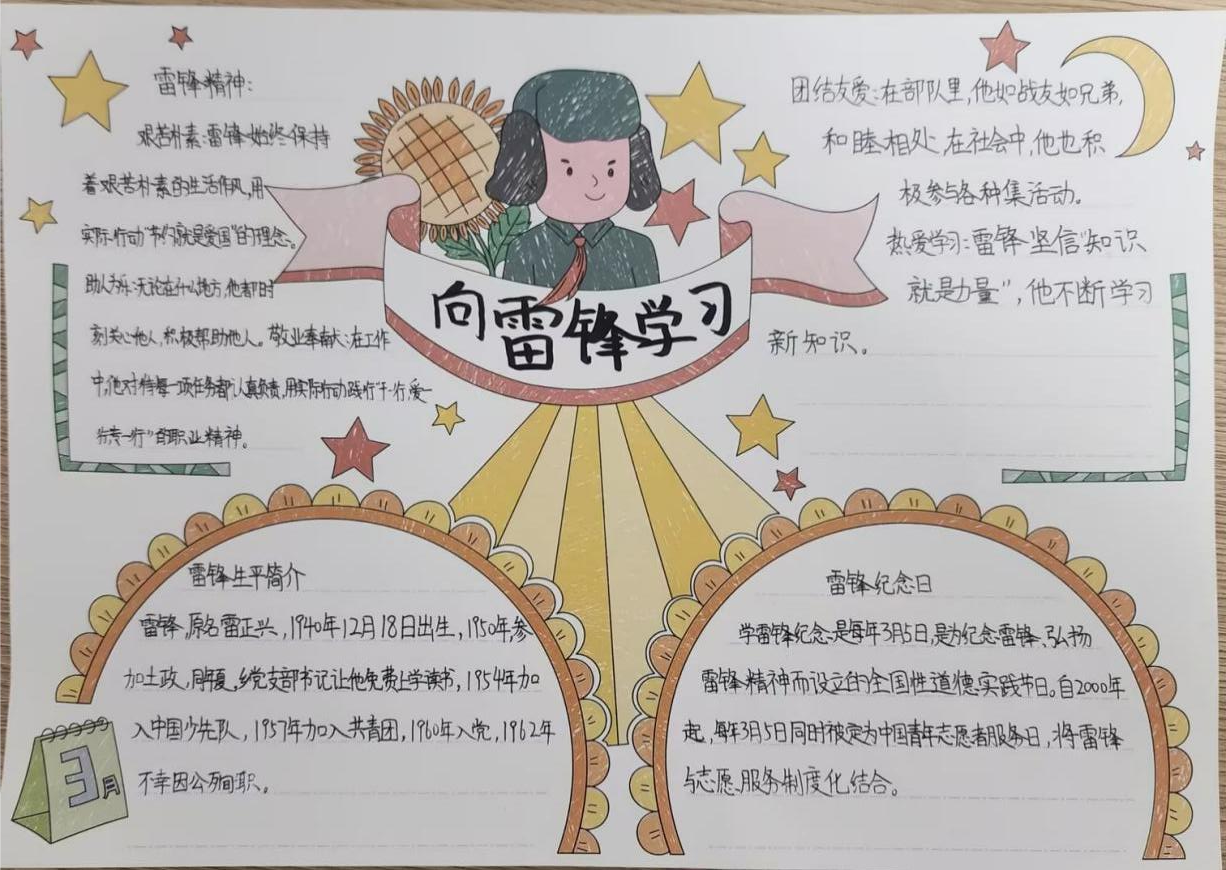 向雷锋学习
雷锋精神:
艰苦朴素:雷锋始终保持
着艰苦朴素的生活作风,用
实际行动书"就是爱国"的理念。
助人为乐:无论在什么地方,他都时
刻关心他人,积极帮助他人。敬业奉献:在工作
中,他对待每一项任务都认真负责,用实际行动践行"干一行,爱一
行专一行"的职业精神。
团结友爱:在部队里,他如战友如兄弟,
和睦相处,在社会中,他也积
极参与各种集活动。
热爱学习:雷锋坚信"知识
就是力量",他不断学习
新知识。
雷锋生平简介
雷锋,原名雷正兴,1940年12月18日出生,1950年参
加土政,同年夏,乡党支部书记让他免费上学读书,1954年加
入中国少先队,1957年加入共青团,1960年入党,1962年
不幸因公殉职。
3月
雷锋纪念日
学雷锋纪念是每年3月5日,是为纪念雷锋、弘扬
雷锋精神而设立的全国性道德实践节日。自2000年
起,每年3月5日同时被定为中国青年志愿者服务日,将雷锋
与志愿服务制度化结合。